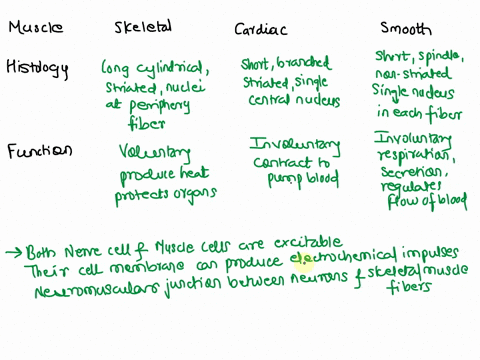 Muscle Skeletal Cardiac Smooth
Histology Long cylindrical, Short, branched Short, spindle,
striated, nuclei Striated, single non-striated
at periphery central nucleus Single nucleus
fiber in each fiber
Function Voluntary Involuntary Involuntary
produce heat contract to respiration,
protects organs pump blood secretion,
regulates
flow of blood
→ Both Nerve cell & Muscle cells are excitable
Their cell membrane can produce electrochemical impulses
Neuromuscular junction between neurons & skeletal muscle
fibers